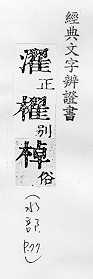 經典文字辨證書
濯正櫂别棹俗
(水部